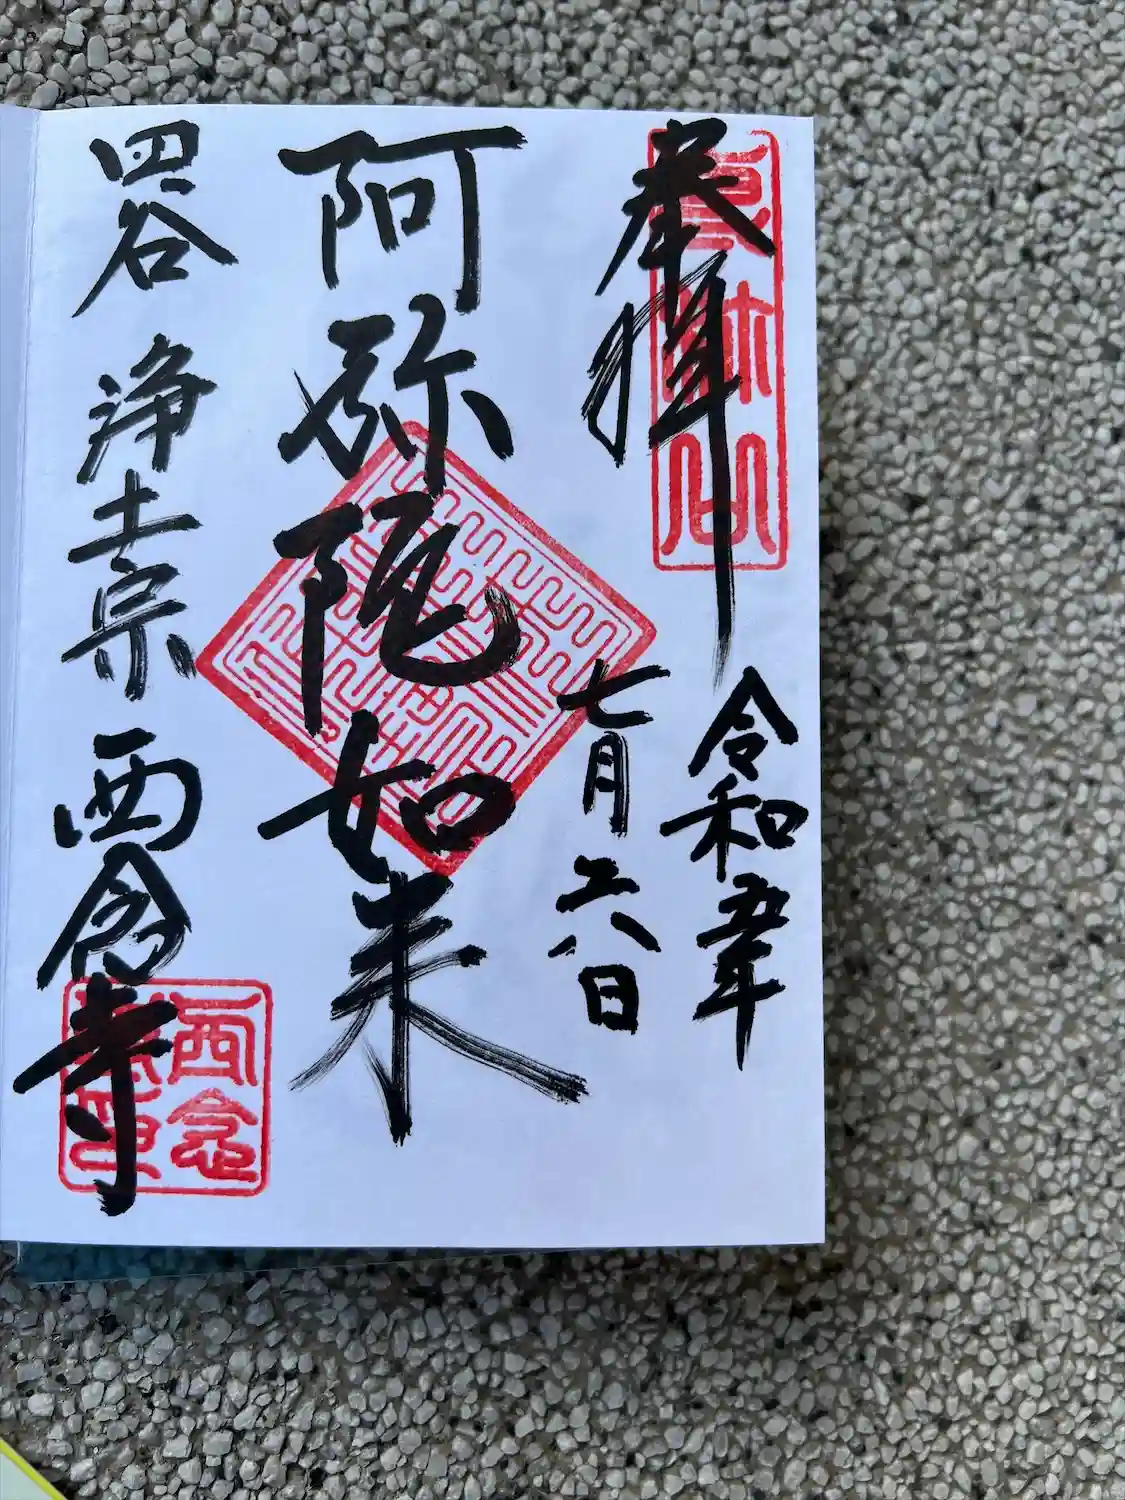 奉拝
專称山
令和五年
七月二八日
阿弥陀如来
四谷 浄土宗 西念寺
西念
寺印